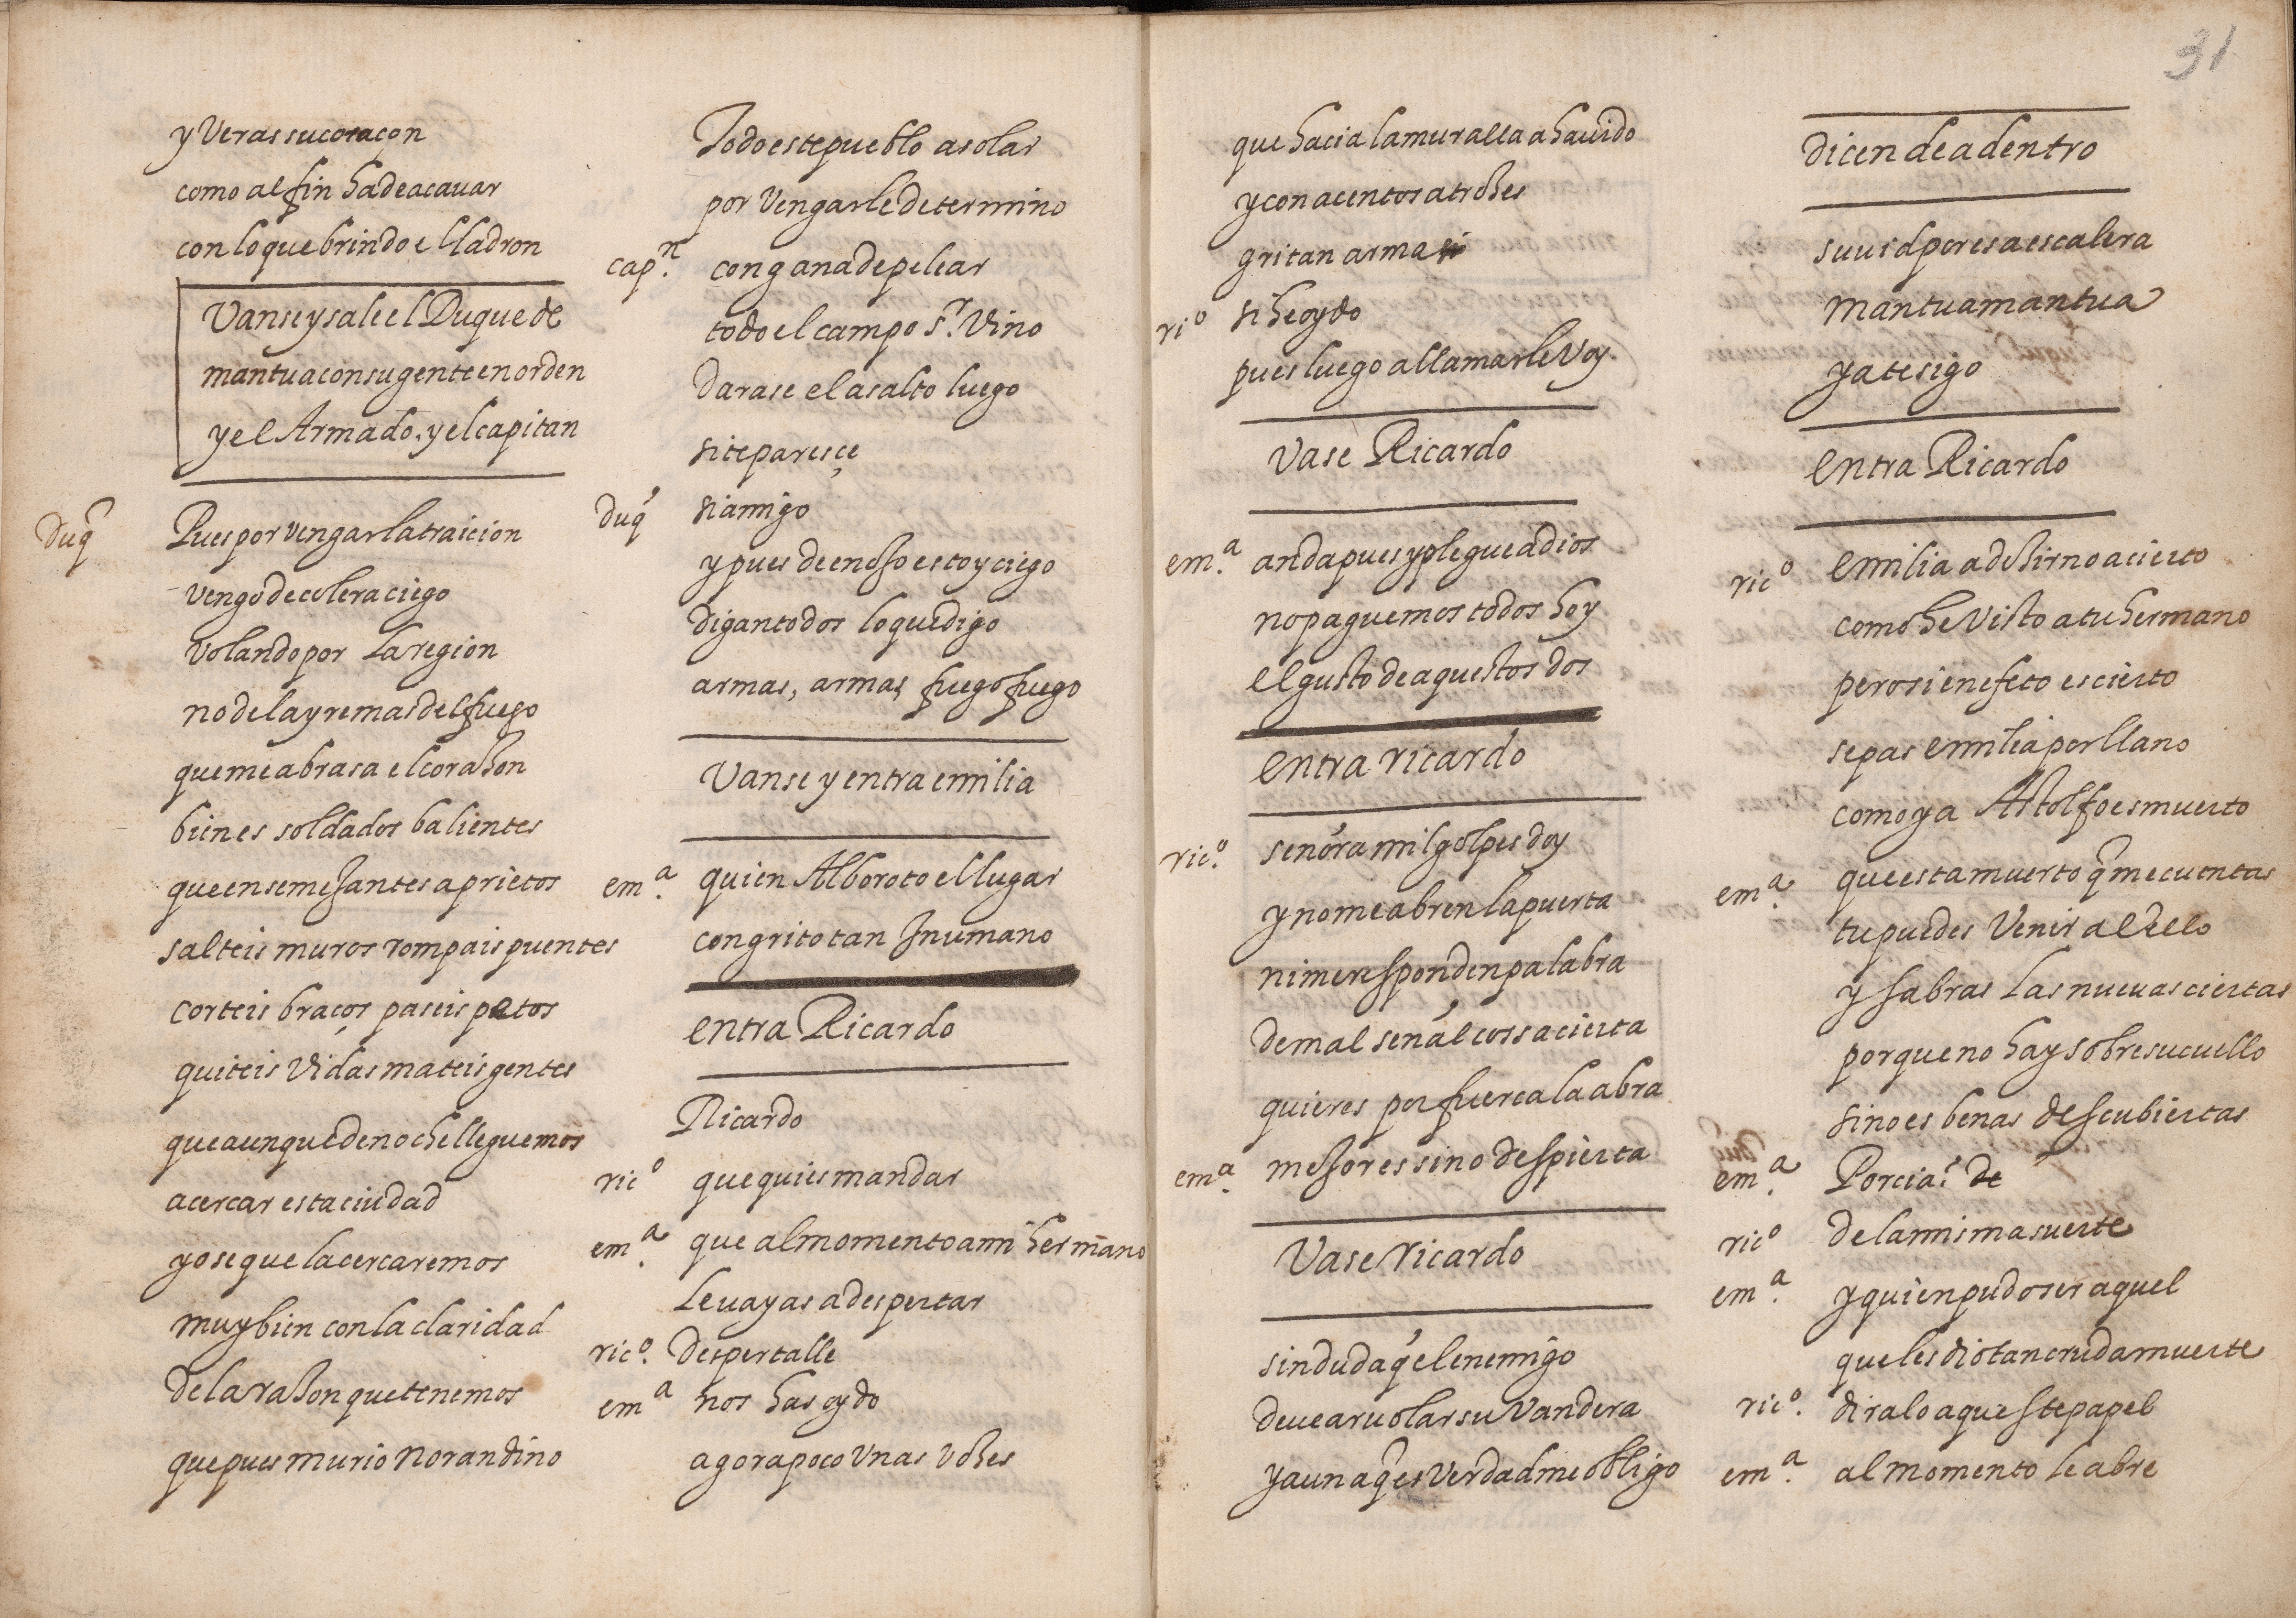 31
y Veras su coraçon
como al fin ha de acauar
con lo que brindo el ladron
Vanse y sale el Duque de
mantua con su gente en orden
y el Armado. y el capitan
Duq̃ Pues por vengar la traicion
vengo de colera ciego
volando por la region
no del ayre mas del fuego
que me abrasa el corahon
bien es soldados balientes
que en semehantes aprietos
salteis muros rompais puentes
corteis braços paseis petos
quiteis vidas mateis gentes
que aunque de noche lleguemos
a cercar esta ciudad
yo se que la cercaremos
muy bien con la claridad
de la rahon que tenemos
que pues murio norandino
Todo este pueblo asolar
por vengarle determino
capn. con gana de pelear
todo el campo sr. vino
darase el asalto luego
si te paresçe
duq̃ si amigo
y pues de enoho estoy ciego
digan todos lo que digo
armas, armas fuego fuego
Vanse y entra emilia
ema. quien Alboroto el lugar
con grito tan Inumano
entra Ricardo
Ricardo
rico que quies mandar
ema. que al momento a mi hermano
le vayas a despertar
rico. despertalle
ema nos has oydo
agora poco unas vohes
que hacia la muralla a hauido
y con acentos atrohes
gritan arma
rio si he oydo
pues luego a llamarle voy.
Vase Ricardo
ema. anda pues y plegue a dios
no paguemos todos hoy
el gusto de aquestos dos
entra ricardo
rico. señora mil golpes doy
y no me abren la puerta
ni me responden palabra
de mal señal cossa cierta
quieres por fuerca la abra
ema. mehor es si no despierta
Vase ricardo
sin duda q̃ el enemigo
deue aruolar su vandera
y aun a q̃ es verdad me obligo
dicen de adentro
suuid por esa escalera
mantua mantua
ya te sigo
entra Ricardo
rico emilia a dehir no acierto
como he visto a tu hermano
pero si en efeto es cierto
sepas emilia por llano
como ya Astolfo es muerto
ema. que esta muerto q̃ me cuentas
tu puedes venir a vello
y sabras las nueuas ciertas
porque no hay sobre su cuello
sino es benas descubiertas
ema. Porcia? de
rico de la misma suerte
ema. y quien pudo ser aquel
que les dio tan cruda muerte
rico. diralo aqueste papel
ema. al momento le abre